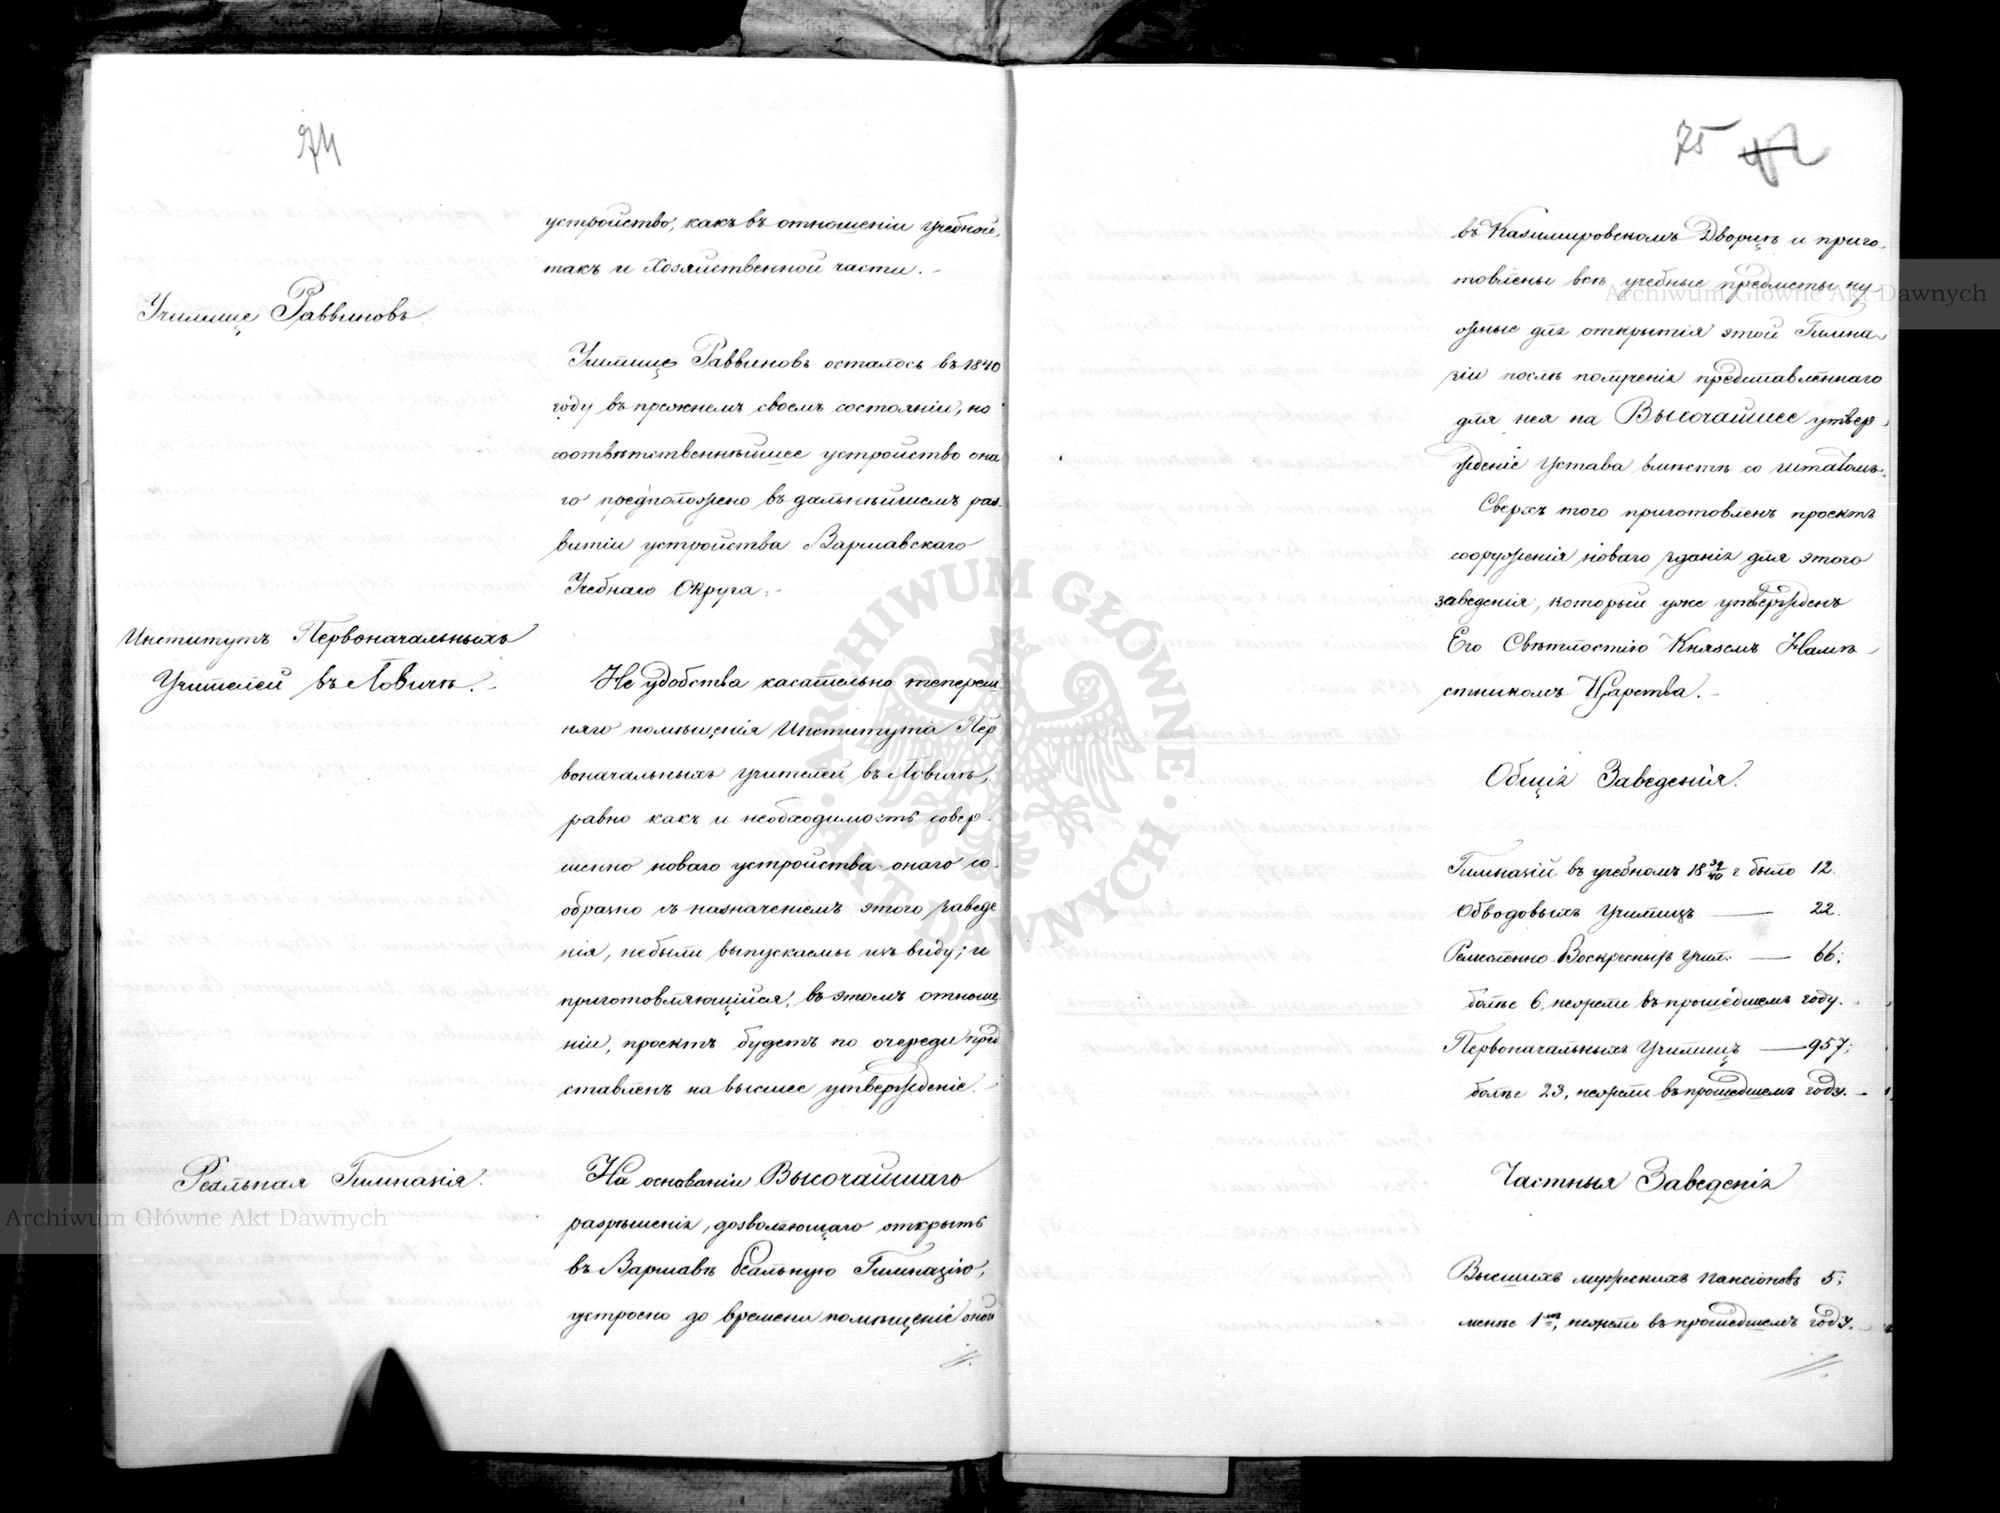 74
устройство, какъ въ отношеніи учебной,
такъ и хозяйственной части.
Училище Раввиновъ
Училище Раввиновъ осталось въ 1840
году въ прежнемъ своемъ состояніи, но
соотвѣтственнѣйшее устройство она
го предположено въ дальнѣйшемъ раз-
витіи устройства Варшавскаго
Учебнаго Округа.
Институтъ Первоначальныхъ
Учителей въ Ловичѣ.
Не удобства касательно теперешъ
няго помѣщенія Института Пер
воначальныхъ учителей въ Ловичѣ,
равно какъ и необходимость совер-
шенно новаго устройства онаго со-
образно съ назначеніемъ этого заведе
нія, небыли выпускаемы изъ виду; и
приготовляющійся, въ этомъ отноше
ніи, проектъ будетъ по очереди пред
ставленъ на высшее утвержденіе.
Реальная Гимназія.
На основаніи Высочайшаго
разрѣшенія, дозволяющаго открыть
въ Варшавѣ Реальную Гимназію,
устроено до времени помѣщеніе оной
75 42
въ Казимировскомъ Дворцѣ и приго-
товлены всѣ учебные предметы ну
жные для открытія этой Гимна-
зіи послѣ полученія представленнаго
для нея на Высочайшее утвер-
жденіе Устава вмѣстѣ со штатомъ.
Сверхъ того приготовленъ проектъ
сооруженія новаго зданія для этого
заведенія, который уже утвержденъ
Его Свѣтлостію Княземъ Намѣ-
стникомъ Царства.
Общія Заведенія.
Гимназій въ учебномъ 18 39/40 г было 12.
Обводовыхъ Училищъ — 22.
Ремесленно Воскресныхъ Учил: — 66;
болѣе 6, нежели въ прошедшемъ году.
Первоначальныхъ Училищъ — 957;
болѣе 23, нежели въ прошедшемъ году.
Частныя Заведенія
Высшихъ мужескихъ пансіоновъ 5;
менѣе 1мъ, нежели въ прошедшемъ году.
Archiwum Główne Akt Dawnych
Archiwum Główne Akt Dawnych
ARCHIWUM GŁÓWNE · AKT DAWNYCH ·